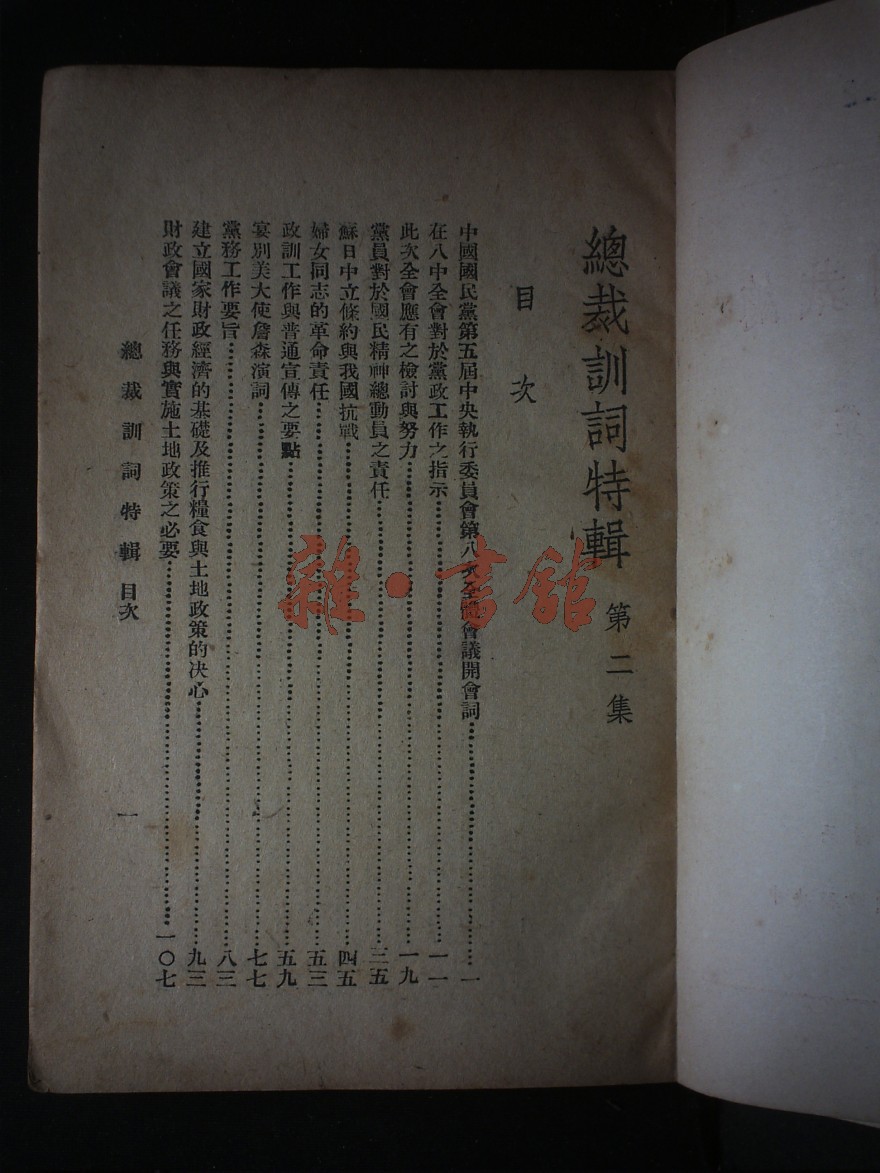 總裁訓詞特輯 第二集
目次
中國國民黨第五屆中央執行委員會第八次全體會議開會詞……一
在八中全會對於黨政工作之指示……一一
此次全會應有之檢討與努力……一九
黨員對於國民精神總動員之責任……三五
蘇日中立條約與我國抗戰……四五
婦女同志的革命責任……五三
政訓工作與普通宣傳之要點……五九
宴別美大使詹森演詞……七七
黨務工作要旨……八三
建立國家財政經濟的基礎及推行糧食與土地政策的決心……九三
財政會議之任務與實施土地政策之必要……一〇七
總裁訓詞特輯 目次
一
雜·書館